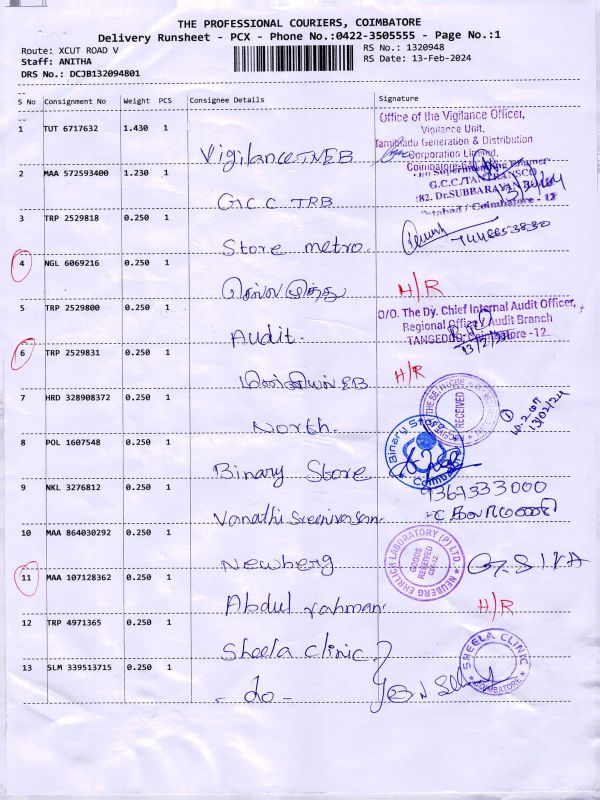 THE PROFESSIONAL COURIERS, COIMBATORE
Delivery Runsheet - PCX - Phone No.:0422-3505555 - Page No.:1
Route: XCUT ROAD V
RS No.: 1320948
Staff: ANITHA
RS Date: 13-Feb-2024
DRS No.: DCJB132094801
S No Consignment No Weight PCS Consignee Details Signature
1 TUT 6717632 1.430 1 Vigilance TNEB
Office of the Vigilance Officer,
Vigilance Unit,
Tamilnadu Generation & Distribution
Corporation Limited,
2 MAA 572593400 1.230 1 G.C.C TRB
G.C.C./TANTRANSCO
182, Dr.SUBBARAYAN ROAD
Tatabad / Coimbatore - 12
3 TRP 2529818 0.250 1 Store metro.
4 NGL 6069216 0.250 1
H/R
5 TRP 2529800 0.250 1 Audit.
O/O. The Dy. Chief Internal Audit Officer,
Regional Office Audit Branch
TANGEDCO, Coimbatore -12.
13/2/
6 TRP 2529831 0.250 1
H/R
7 HRD 328908372 0.250 1 North.
RECEIVED
13/02/24
8 POL 1607548 0.250 1 Binary Store
Binary Store
9 NKL 3276812 0.250 1 Vanathi Sreenivasan
9361333000
10 MAA 864030292 0.250 1 Newberg
NEUBERG EHRLICH LABORATORY (P) LTD.
GOODS
RECEIVED
CBE-12.
G. SIVA
11 MAA 107128362 0.250 1 Abdul rahman.
H/R
12 TRP 4971365 0.250 1 Sheela clinic
SHEELA CLINIC
COIMBATORE
13 SLM 339513715 0.250 1 - do -